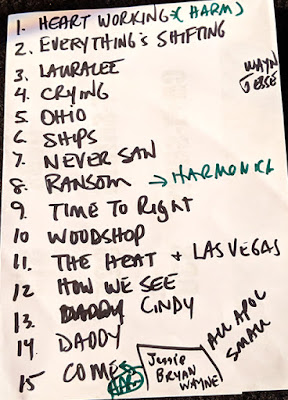 1. HEART WORKING *(HARM)
2. EVERYTHING'S SHIFTING
3. LAURALEE
4. CRYING
5 OHIO
6. SHIPS
7. NEVER SAN
8. RANSOM → HARMONICA
9. TIME TO RIGHT
10 WOODSHOP
11. THE HEAT + LAS VEGAS
12 HOW WE SEE
13. CINDY
14. DADDY
15 COMES
WAYN
JESSE
Jessie
BRYAN
WAYNE
ALL APOL
SMALL